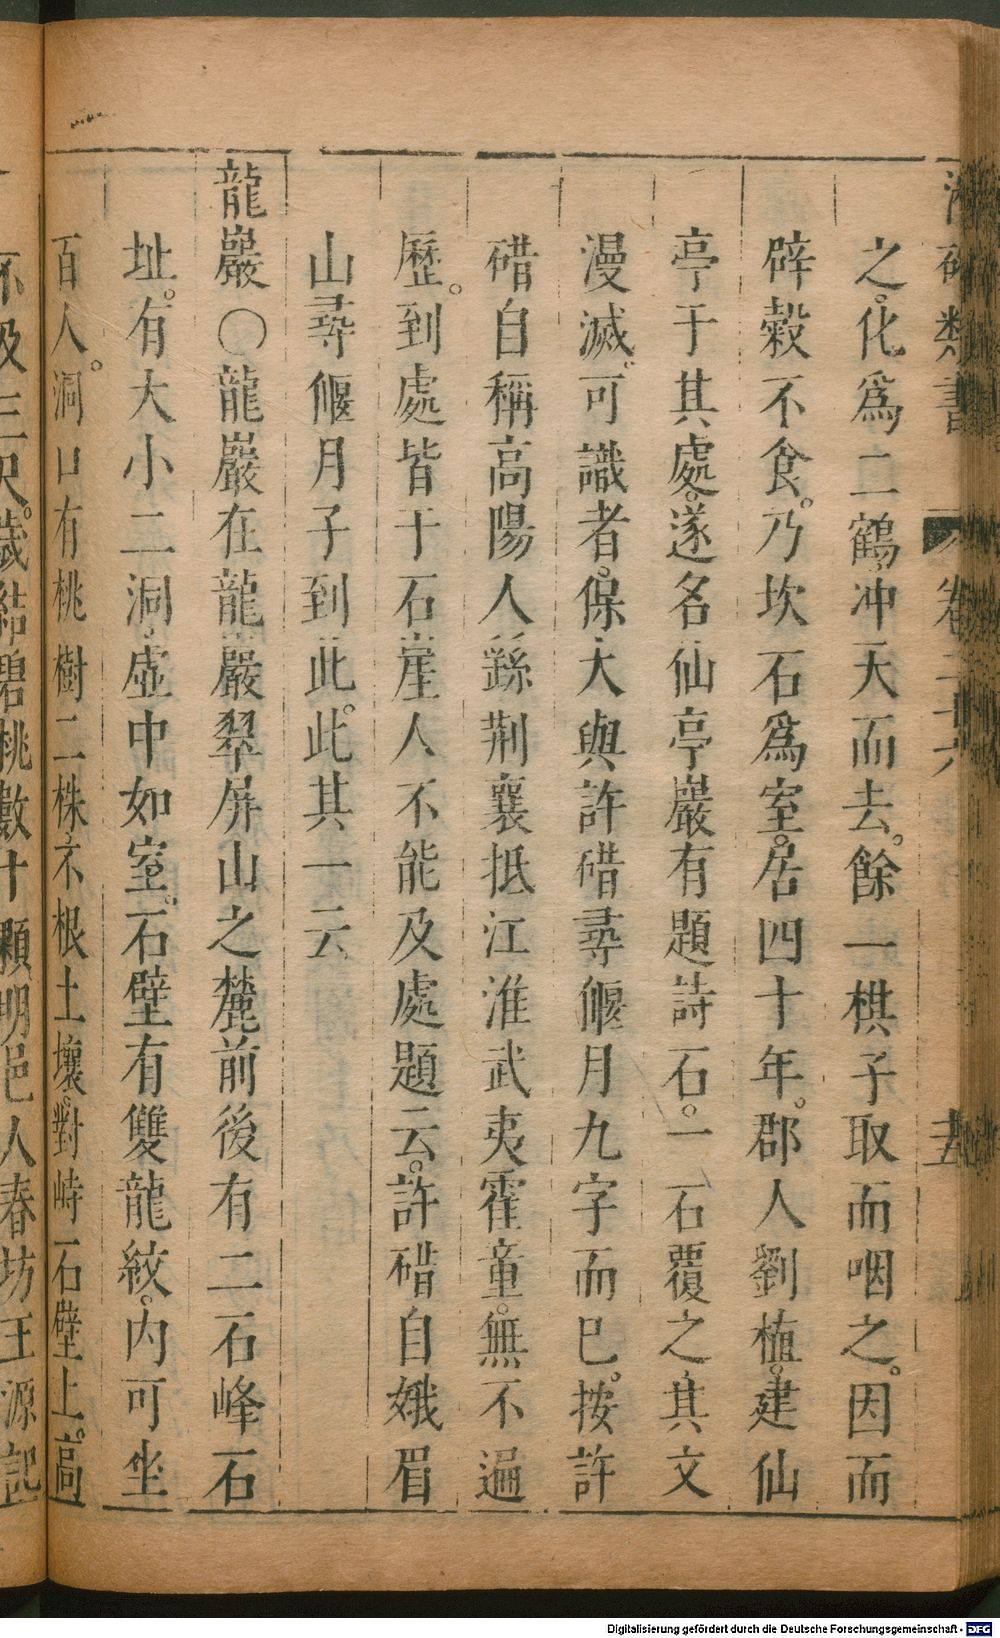 類書 卷二十六
之。化爲二鶴。冲天而去。餘一棋子取而咽之。因而
辟穀不食。乃坎石爲室。居四十年。郡人劉植。建仙
亭于其處。遂名仙亭巖有題詩石。一石覆之。其文
漫滅。可識者。保大與許碏尋偃月九字而已。按許
碏自稱高陽人繇荆襄抵江淮武夷霍童。無不遍
歷。到處皆于石崖人不能及處題云。許碏自娥眉
山尋偃月子到此。此其一云
龍巖〇龍巖在龍巖翠屏山之麓前後有二石峰石
址。有大小二洞。虛中如室。石壁有雙龍絞。内可坐
百人。洞口有桃樹二株。不根土壤。對峙石壁上。高
不及三尺。歲結碧桃數十顆明邑人春坊王源記
Digitalisierung gefördert durch die Deutsche Forschungsgemeinschaft - DFG